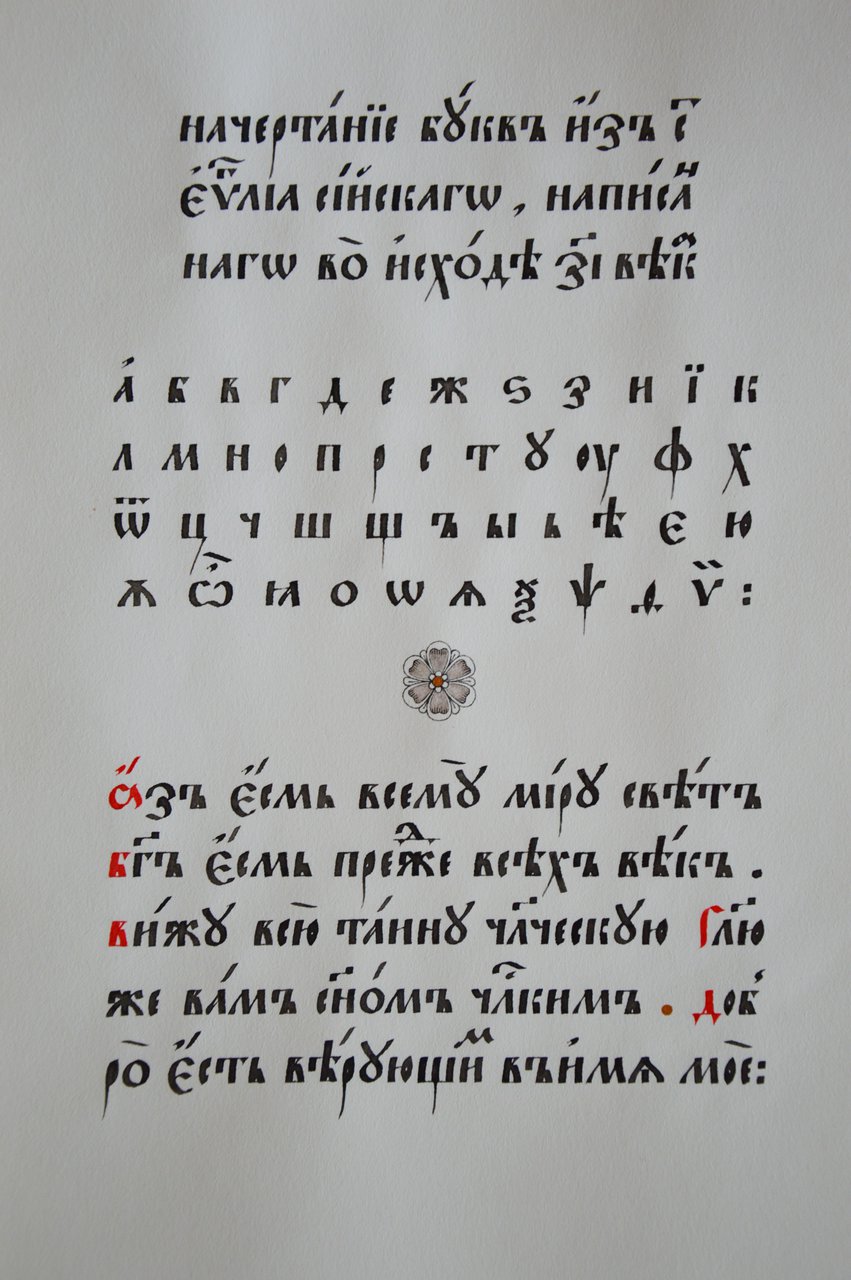 начерта́нїе бꙋ́квъ и҆́зъ є҃
є҆ѵⷢ҇лїа сі́йскагѡ, написа́ⷩ
нагѡ во̀ и҆схо́дѣ з҃і вѣ́кⷶ
а҆ б в г д е ж ѕ з и ї к
л м н о п р с т ꙋ оу ф х
ѿ ц ч ш щ ъ ы ь ѣ є ю
ѫ ѽ ꙗ о ѡ ѧ ѯ ѱ д ѵ̈:
А҆́зъ є҆́смь всемꙋ̀ мі́рꙋ свѣ́тъ
бг҃ъ є҆́смь преⷤ́де всѣ́хъ вѣ́къ.
ви́жꙋ всю̀ та́йнꙋ чл҃ческꙋю гл҃ю
же ва́мъ сн҃о́мъ чл҃кимъ. доб
ро̀ є҆́сть вѣ́рꙋющїиⷨ въ и҆мѧ моѐ: